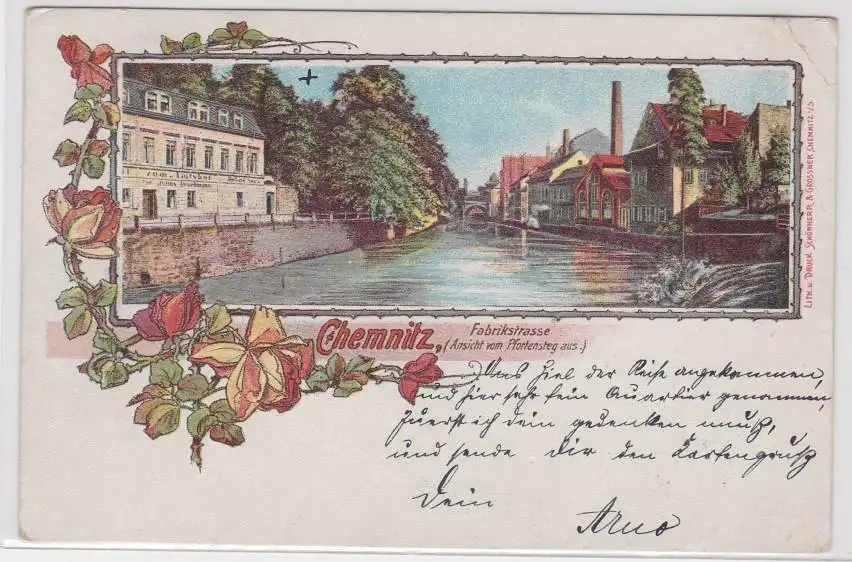 zum Amtshof
Chemnitz,
Fabrikstrasse
(Ansicht vom Pfortensteg aus.)
LITH. u. DRUCK SCHÖNHERR & GROSSNER, CHEMNITZ i/S
Ans Ziel der Reise angekommen,
und hier sehr fein Quartier genommen,
Zuerst ich dein gedenken muß,
und sende dir den Kartengruß
Dein
Arno